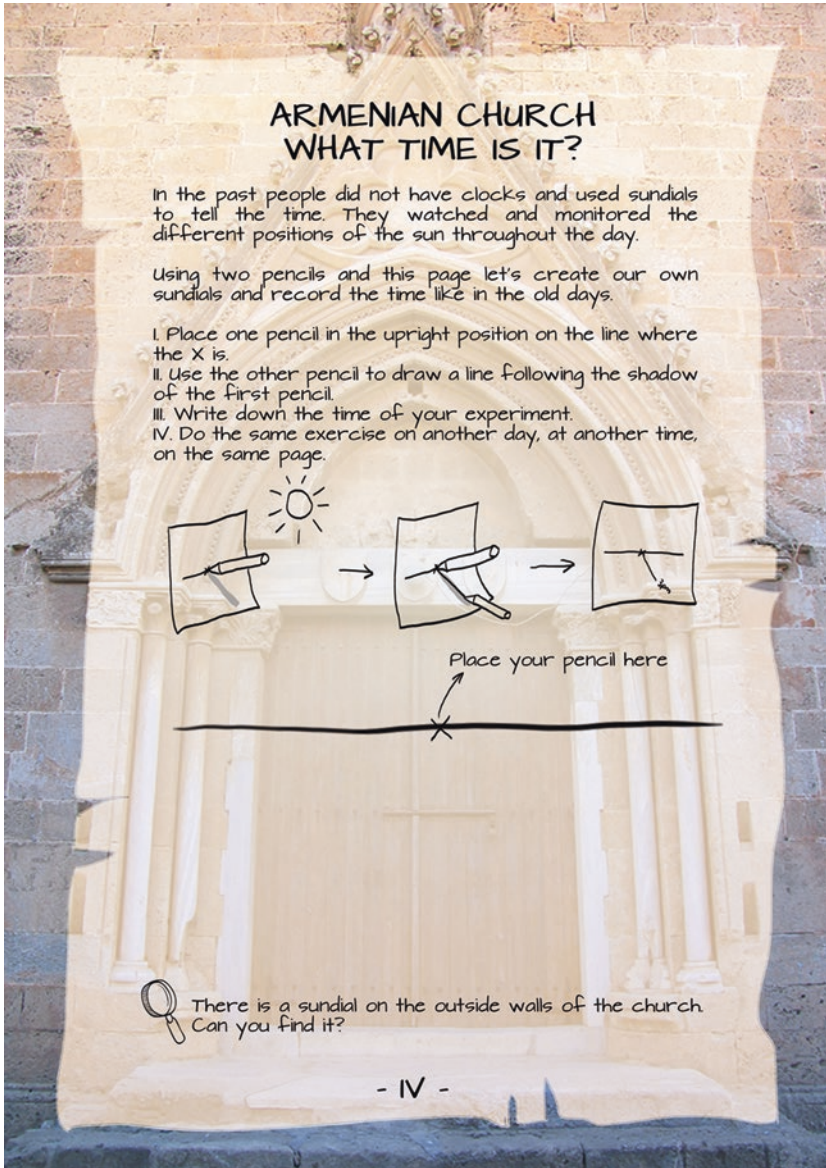 ARMENIAN CHURCH
WHAT TIME IS IT?
In the past people did not have clocks and used sundials
to tell the time. They watched and monitored the
different positions of the sun throughout the day.
Using two pencils and this page let's create our own
sundials and record the time like in the old days.
I. Place one pencil in the upright position on the line where
the X is.
II. Use the other pencil to draw a line following the shadow
of the first pencil.
III. Write down the time of your experiment.
IV. Do the same exercise on another day, at another time,
on the same page.
Place your pencil here
There is a sundial on the outside walls of the church.
Can you find it?
- IV -